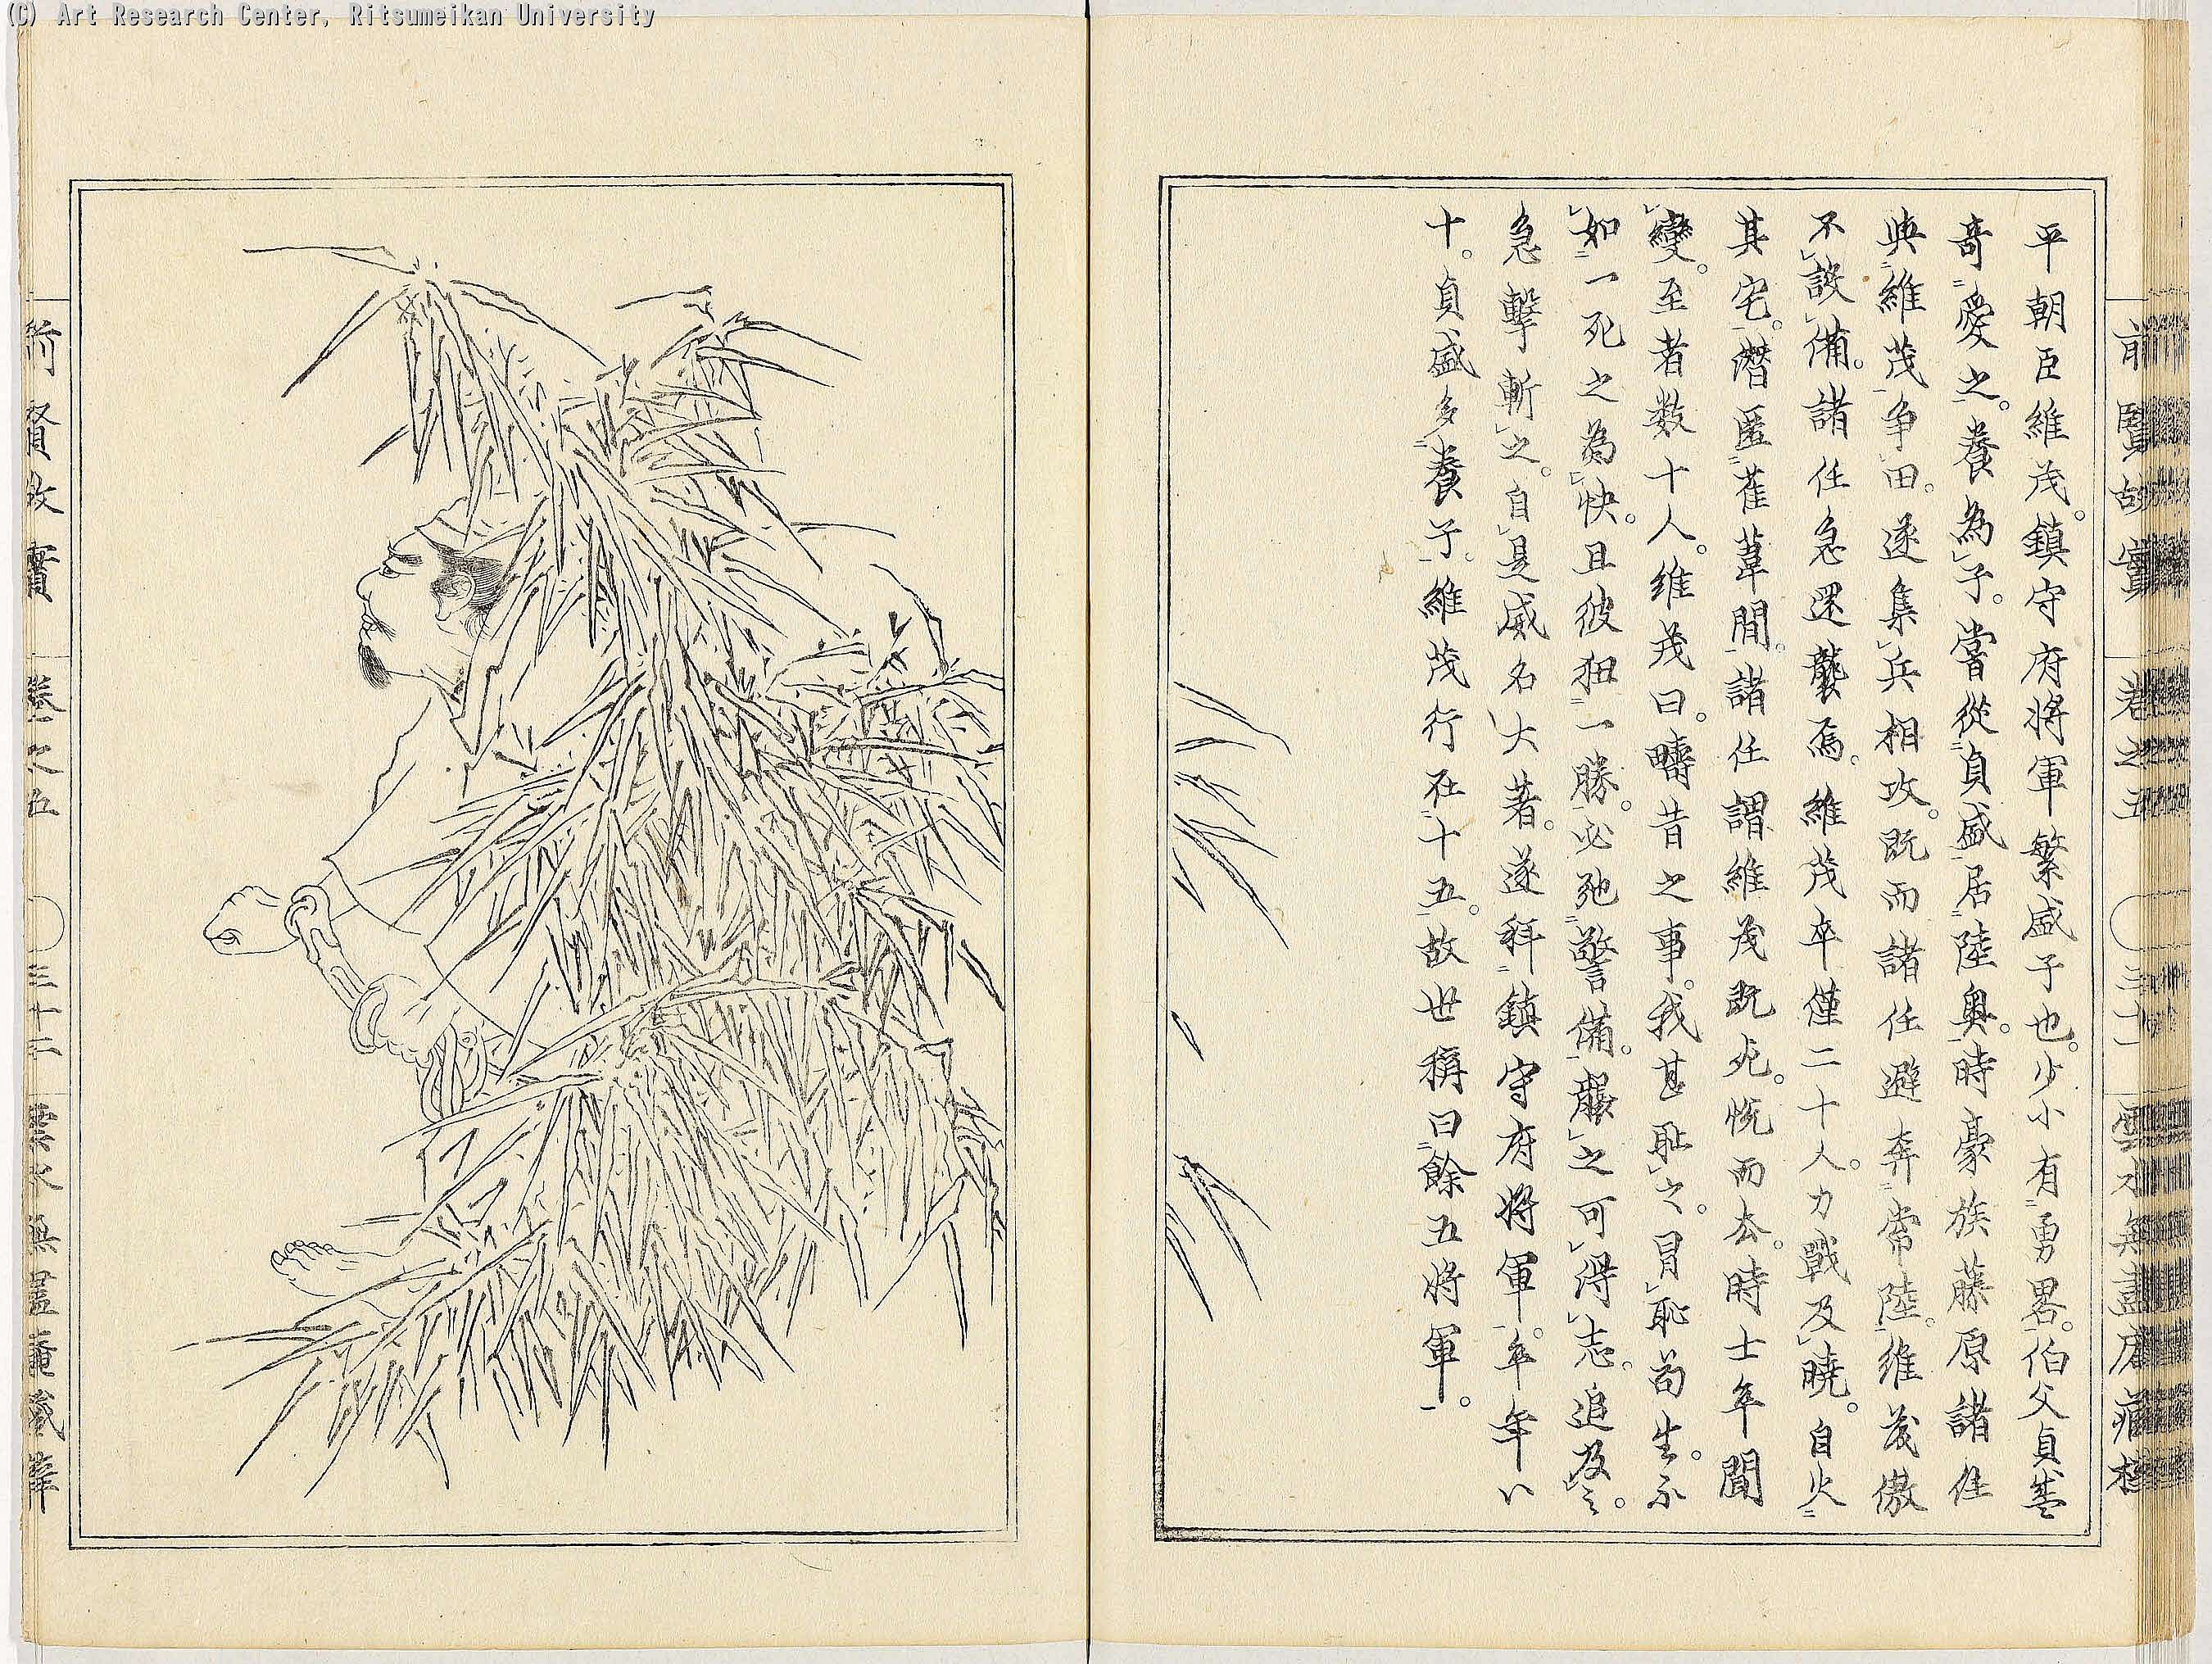 (C) Art Research Center, Ritsumeikan University
前賢故實 卷之五 三十二 雲水無盡庵藏梓
平朝臣維茂。鎮守府將軍繁盛子也。少小有勇畧。伯父貞盛
奇愛之。養為子。嘗從貞盛居陸奥。時豪族藤原諸任
與維茂争田。遂集兵相攻。既而諸任避奔常陸。維茂傲
不設備。諸任急還襲焉。維茂卒僅二十人。力戰及曉。自火
其宅。潜匿萑葦間。諸任謂維茂既死。悦而去。時士卒聞
變。至者数十人。維茂曰。疇昔之事。我甚恥之。冒恥苟生。不
如一死之為快。且彼狃一勝。必弛警備。襲之可得志。追及之。
急擊斬之。自是威名大著。遂拜鎮守府將軍。卒年八
十。貞盛多養子。維茂行在十五。故世稱曰餘五將軍。
前賢故實 卷之五 三十二 雲水無盡庵藏梓